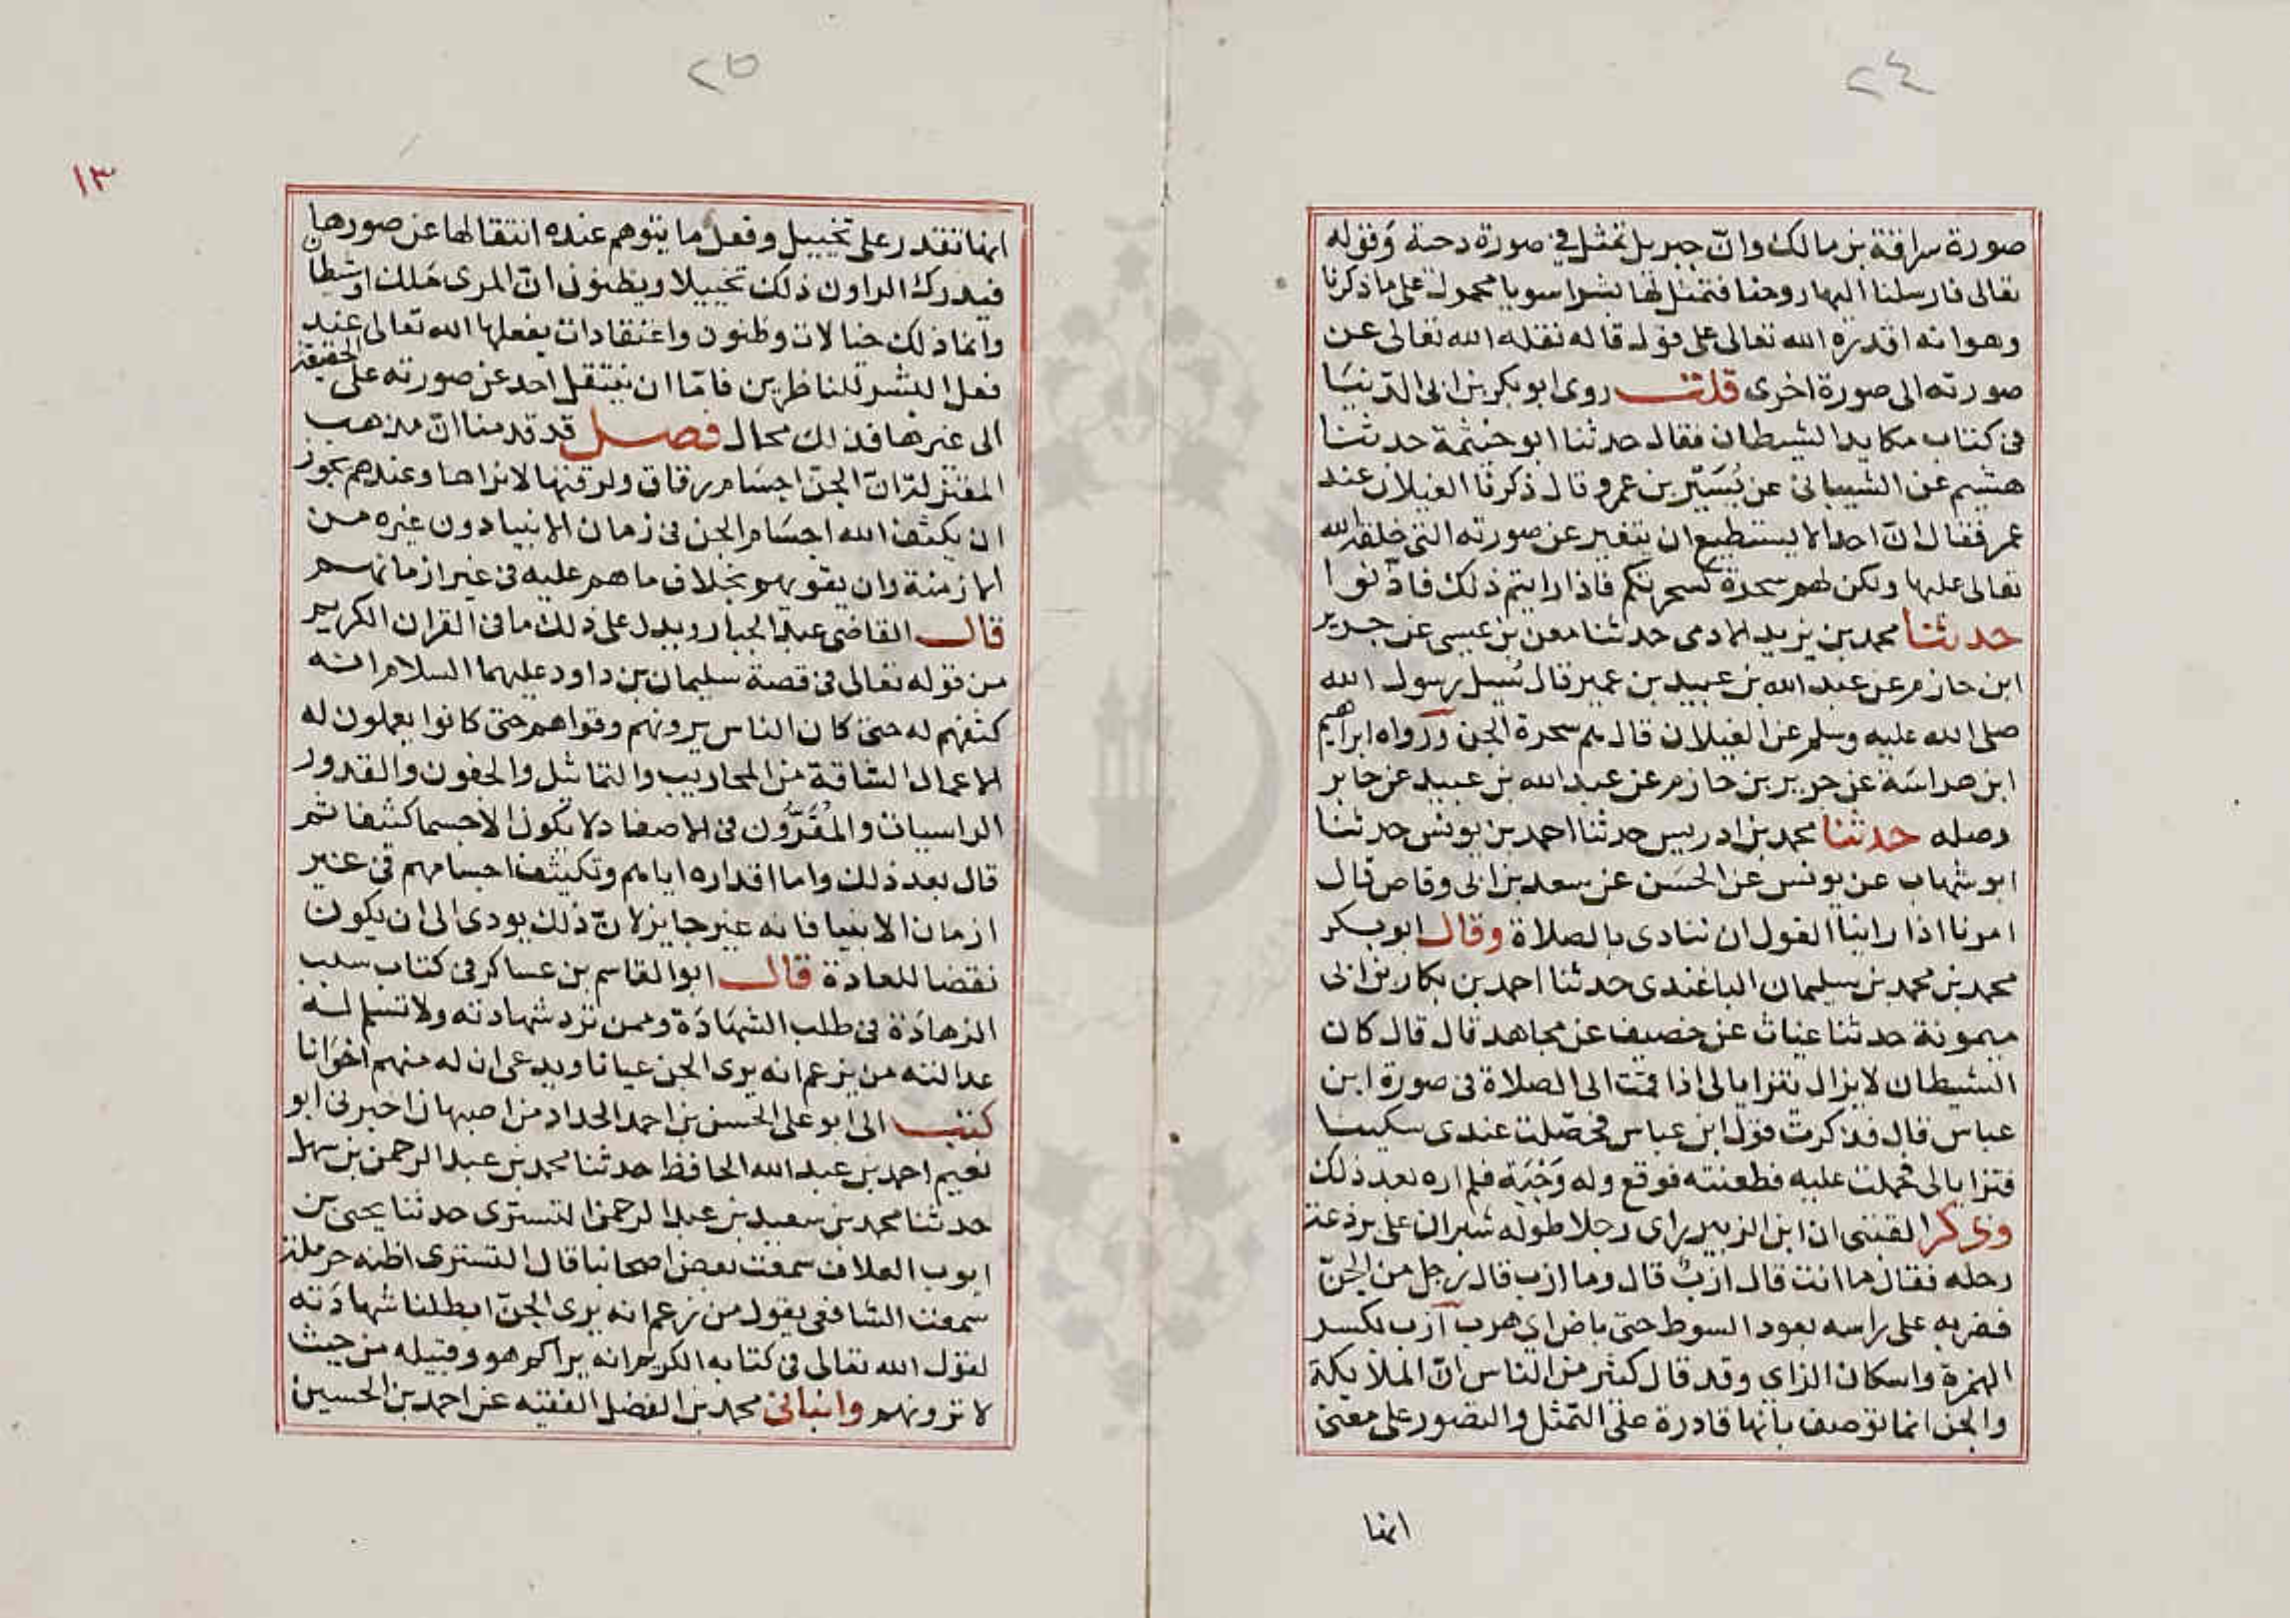 ٢٤
صورة سراقة بن مالك وانّ جبريل تمثل في صورة دحية وقوله
تعالى فارسلنا اليها روحنا فتمثل لها بشرا سويا محمول على ما ذكرنا
وهو انه اقدره الله تعالى على قول قاله نقله الله تعالى عن
صورته الى صورة اخرى قلت روى ابو بكر بن ابى الدنيا
فى كتاب مكايد الشيطان فقال حدثنا ابو خيثمة حدثنا
هشيم عن الشيبانى عن يُسَيْر بن عمرو قال ذكرنا الغيلان عند
عمر فقال انّ احدا لا يستطيع ان يتغير عن صورته التى خلقه الله
تعالى عليها ولكن لهم سحرة كسحرتكم فاذا رايتم ذلك فاذّنوا
حدثنا محمد بن يزيد الادمى حدثنا معن بن عيسى عن جرير
ابن حازم عن عبد الله بن عبيد بن عمير قال سُيل رسول الله
صلى الله عليه وسلم عن الغيلان قال هم سحرة الجن ورواه ابراهيم
ابن هراسَة عن جرير بن حازم عن عبد الله بن عبيد عن جابر
وصله حدثنا محمد بن ادريس حدثنا احمد بن يونس حدثنا
ابو شهاب عن يونس عن الحسَن عن سعد بن ابى وقاص قال
امرنا اذا راينا الغول ان ننادى بالصلاة وقال ابو بكر
محمد بن محمد بن سليمان الباغندى حدثنا احمد بن بكار بن ابى
ميمونة حدثنا غياث عن خصيف عن مجاهد قال قال كان
الشيطان لا يزال يتزايا لى اذا قمت الى الصلاة فى صورة ابن
عباس قال فذكرت قول ابن عباس فحصّلت عندى سكينا
فتزايا لى فحملت عليه فطعنته فوقع وله وَجْبَة فلم اره بعد ذلك
وذكر القتبى ان ابن الزبير راى رجلا طوله شبران على برذعة
رحله فقال ما انت قال ازبّ قال وما ازب قال رجل من الجنّ
فضربه على راسه بعود السوط حتى باص اى هرب ازب بكسر
الهمزة واسكان الزاى وقد قال كثير من الناس انّ الملايكة
والجن انما توصف بانها قادرة على التمثل والتصور على معنى
انها
٢٥
١٣
انها تقدر على تخييل وفعل ما يتوهم عنده انتقالها عن صورها
فيدرك الراون ذلك تخييلا ويظنون انّ المرى ملك او شيطان
وانما ذلك خيالات وظنون واعتقادات يفعلها الله تعالى عند
فعل البشر للناظرين فامّا ان ينتقل احد عن صورته على الحقيقة
الى غيرها فذلك محال فصل قد قدمنا انّ مذهب
المعتزلة انّ الجنّ اجسَام رقاق ولرقتها لا نراها وعندهم يجوز
ان يكثف الله اجسَام الجن فى زمان الانبيا دون غيره من
الازمنة وان يقويهم بخلاف ما هم عليه فى غير ازمانهم
قال القاضى عبد الجبار ويدل على ذلك ما فى القران الكريم
من قوله تعالى فى قصة سليمان بن داود عليهما السلام انه
كثفهم له حتى كان الناس يرونهم وقواهم حتى كانوا يعملون له
الاعمال الشاقة من المحاريب والتماثيل والجفون والقدور
الراسيات والمُقَرّنُون فى الاصفاد لا يكون الا جسما كثيفا ثم
قال بعد ذلك واما اقداره اياهم وتكثيف اجسامهم فى غير
ازمان الانبيا فانه غير جايز لانّ ذلك يودى الى ان يكون
نقضا للعادة قال ابو القاسم بن عساكر فى كتاب سبب
الزهادَة فى طلب الشهَادَة وممن ترد شهادته ولا تسلم له
عدالته من يزعم انه يرى الجن عيانا ويدعى ان له منهم اخوَانا
كتب الى ابو على الحسن بن احمد الحداد من اصبهان اخبرنى ابو
نعيم احمد بن عبد الله الحافظ حدثنا محمد بن عبد الرحمن بن سهل
حدثنا محمد بن سعيد بن عبد الرحمن التسترى حدثنا يحيى بن
ايوب العلاف سمعت بعض اصحابنا قال التسترى اظنه حرملة
سمعت الشافعى يقول من زعم انه يرى الجنّ ابطلنا شهادَته
لقول الله تعالى فى كتابه الكريم انه يراكم هو وقبيله من حيث
لا ترونهم وانبانى محمد بن الفضل الفقيه عن احمد بن الحسين